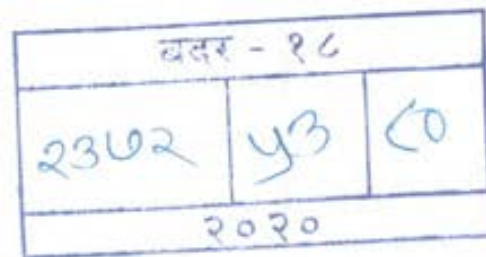 बदर - १८
२३७२ ५३ ८०
२०२०